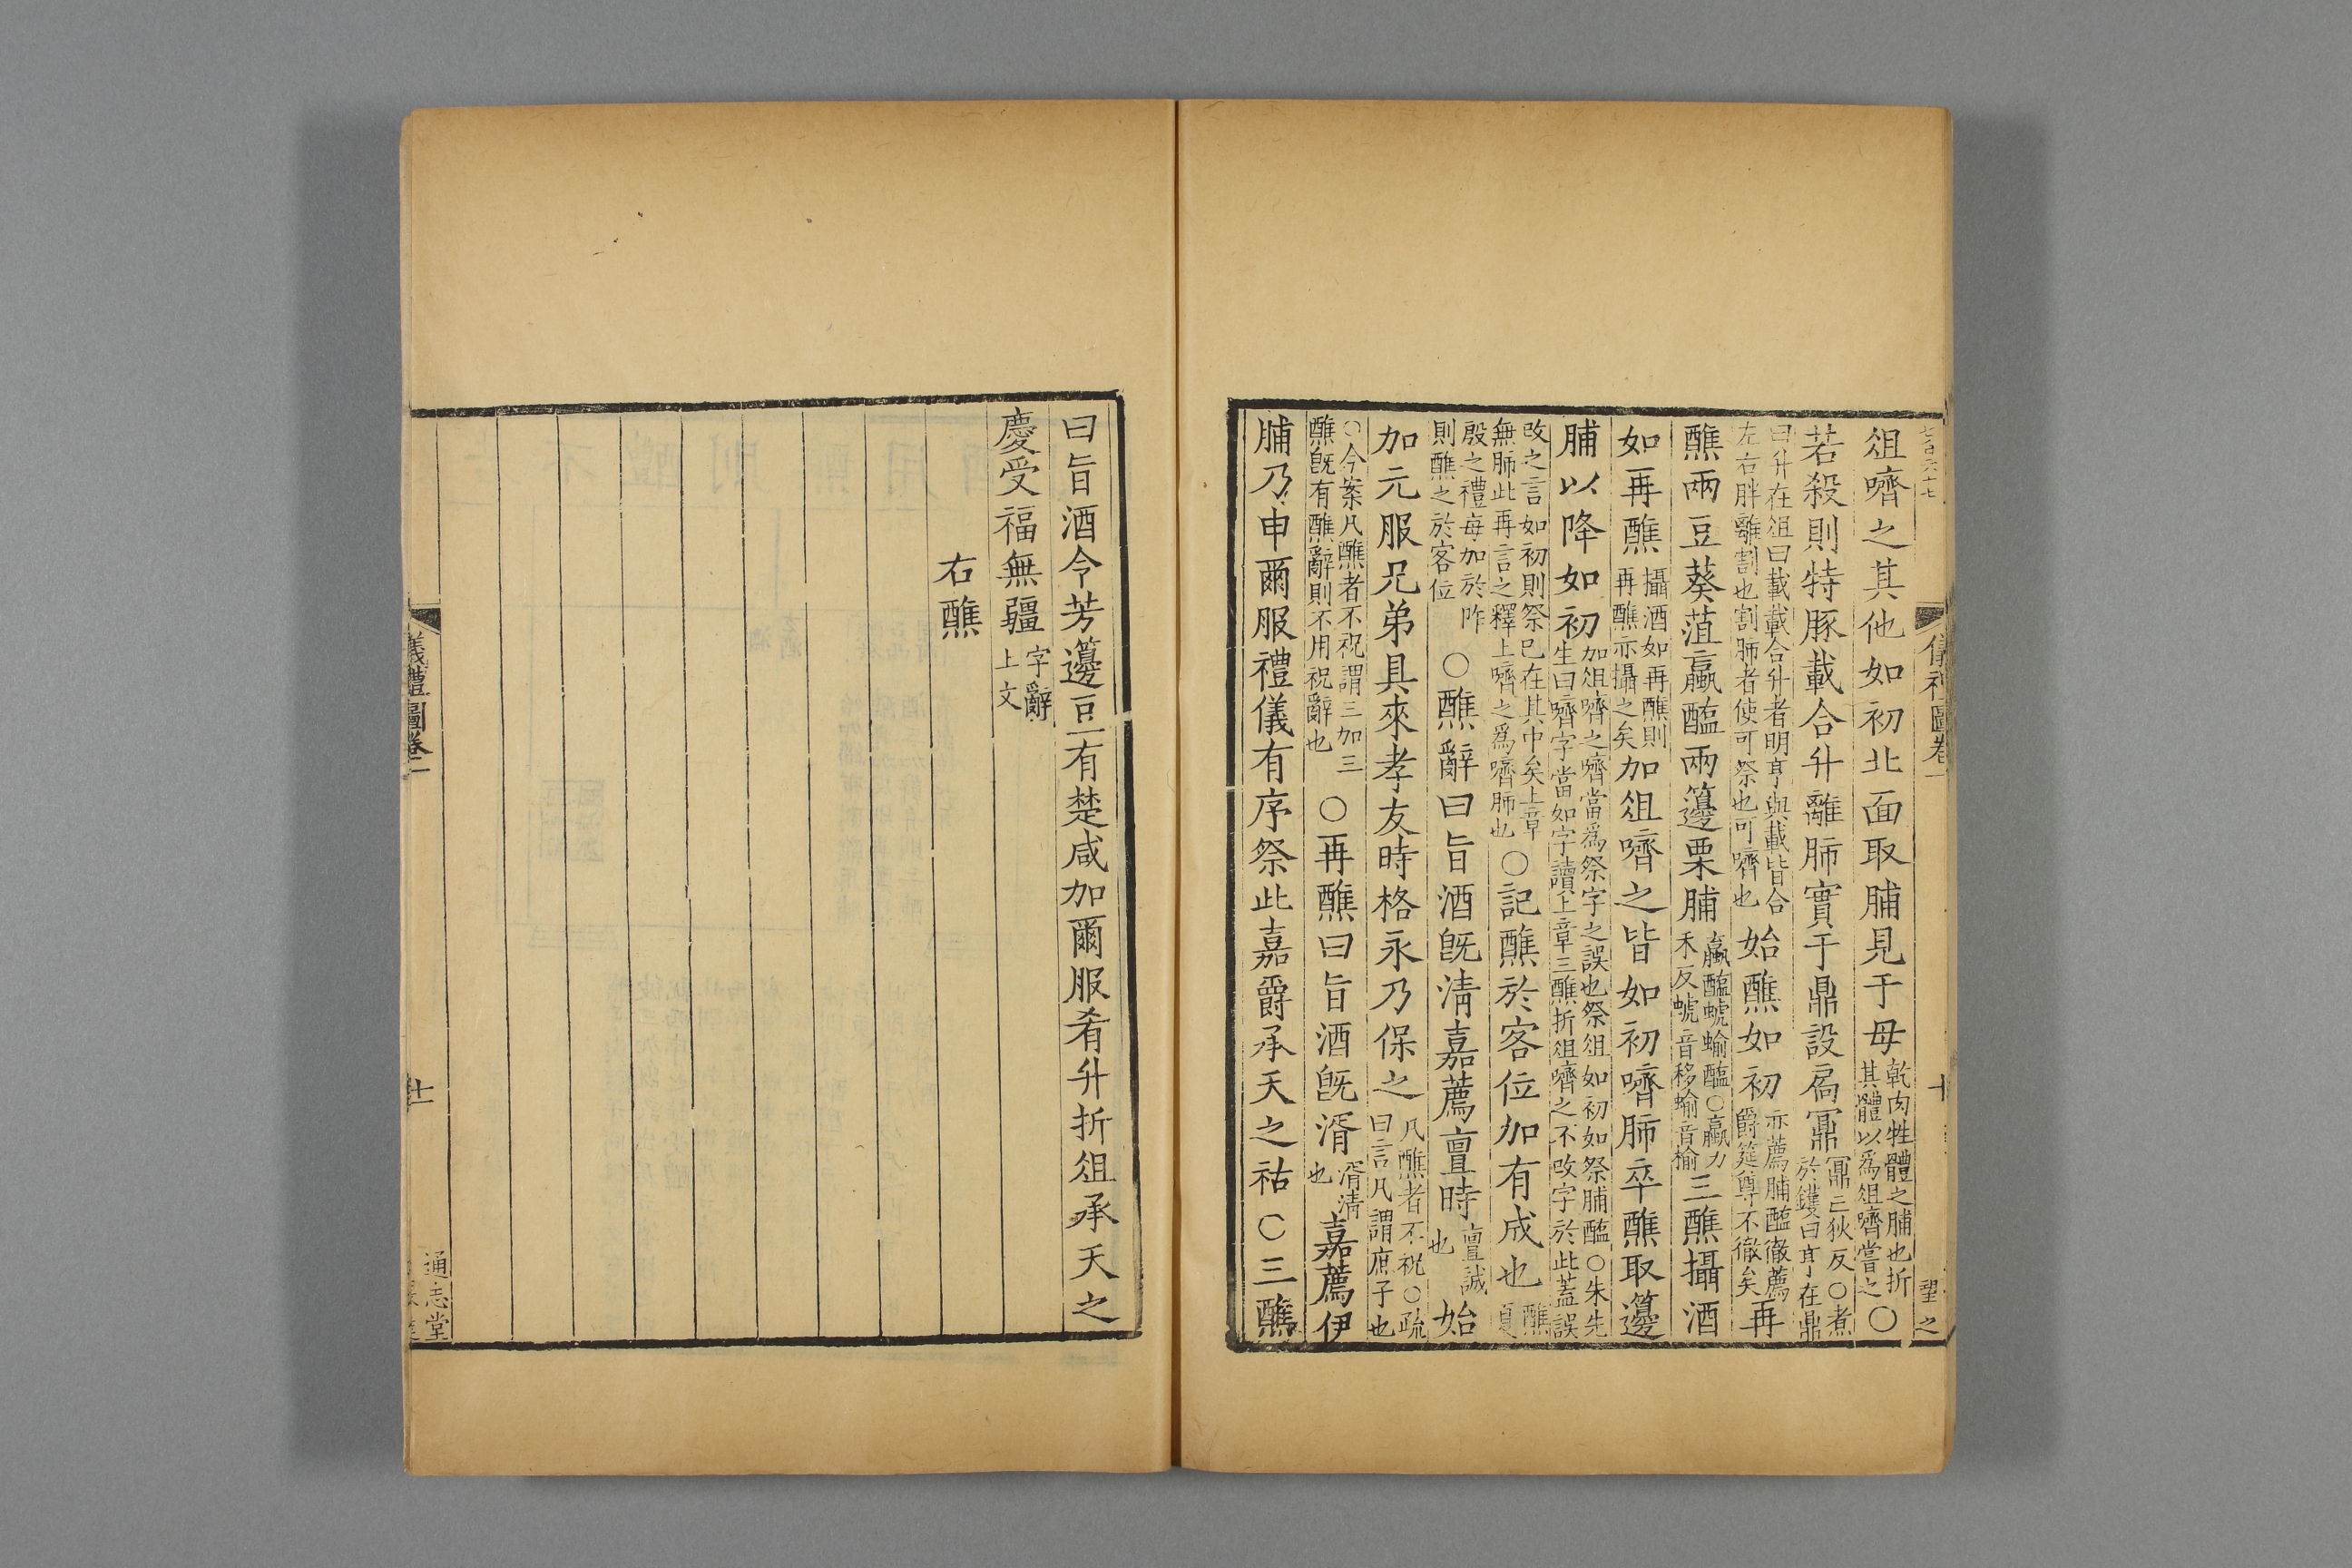 俎嚌之其他如初北面取脯見于母乾肉牲體之脯也折其體以爲俎嚌嘗之○
若殺則特豚載合升離肺實于鼎設扃鼏鼏亡狄反○煮於鑊曰亨在鼎
曰升在俎曰載載合升者明亨與載皆合左右胖離割也割肺者使可祭也可嚌也始醮如初亦薦脯醢徹薦爵筵尊不徹矣再
醮兩豆葵菹蠃醢兩籩栗脯蠃醢蚳蝓醢○蠃力禾反蚳音移蝓音榆三醮攝酒
如再醮攝酒如再醮則再醮亦攝之矣加俎嚌之皆如初嚌肺卒醮取籩
脯以降如初加俎嚌之嚌當爲祭字之誤也祭俎如初如祭脯醢○朱先生曰嚌字當如字讀上章三醮折俎嚌之不改字於此蓋誤
改之言如初則祭已在其中矣上章無肺此再言之釋上嚌之爲嚌肺也○記醮於客位加有成也醮夏
殷之禮每加於阼則醮之於客位○醮辭曰旨酒旣淸嘉薦亶時亶誠也始
加元服兄弟具來孝友時格永乃保之凡醮者不祝○疏曰言凡謂庶子也
○今案凡醮者不祝謂三加三醮旣有醮辭則不用祝辭也○再醮曰旨酒旣湑湑淸也嘉薦伊
脯乃申爾服禮儀有序祭此嘉爵承天之祜○三醮
曰旨酒令芳籩豆有楚咸加爾服肴升折俎承天之
慶受福無疆字辭上文
右醮
儀禮圖卷一
十
望之
儀禮圖卷一
十一
通志堂